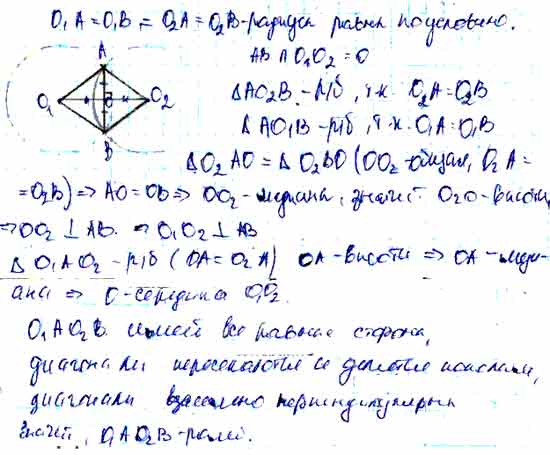 O₁A = O₁B = O₂A = O₂B - радиусы равны по условию.
AB ∩ O₁O₂ = O
A
O₁ O O₂
B
ΔAO₂B - р/б, т.к. O₂A = O₂B
ΔAO₁B - р/б, т.к. O₁A = O₁B
ΔO₂AO = ΔO₂BO (OO₂ - общая, O₂A =
= O₂B) ⇒ AO = OB ⇒ OO₂ - медиана, значит O₂O - высота,
⇒ OO₂ ⊥ AB. ⇒ O₁O₂ ⊥ AB
ΔO₁AO₂ - р/б (OA = O₂A) OA - высота ⇒ OA - меди-
ана ⇒ O - середина O₁O₂.
O₁AO₂B все равные стороны,
диагонали пересекаются и делятся пополам,
диагонали взаимно перпендикулярны
значит, O₁AO₂B - ромб.